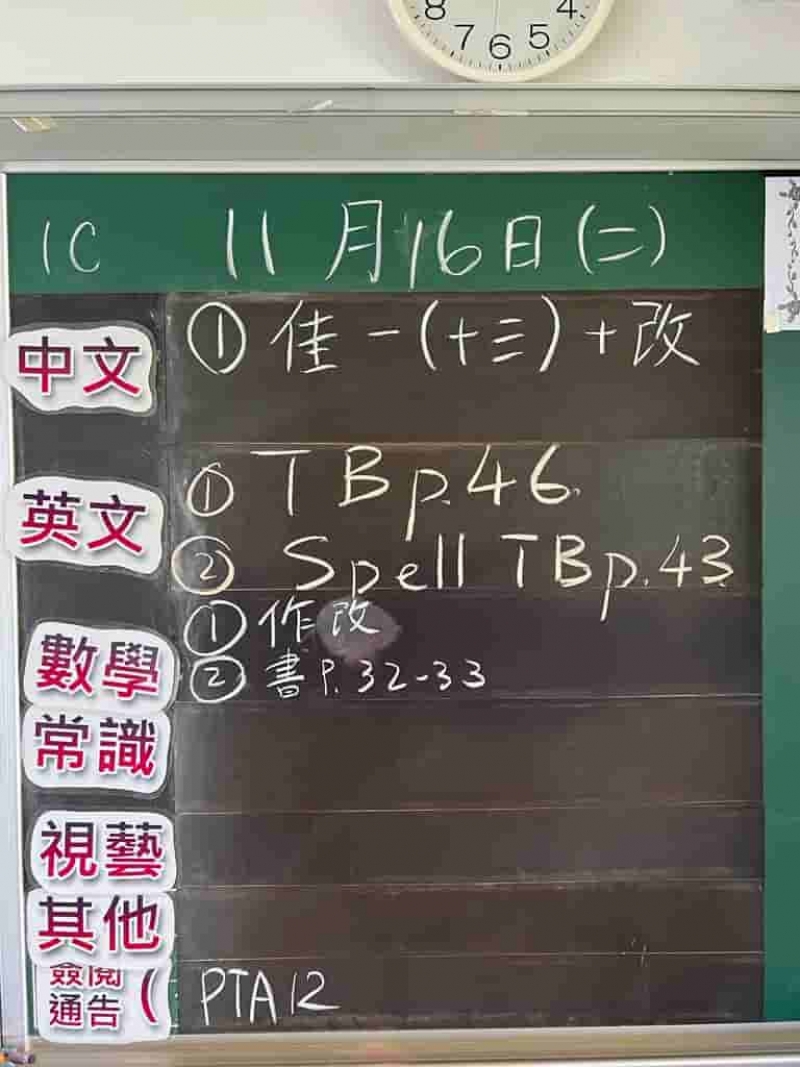 8 7 6 5 4
1C 11月16日(二)
中文 ① 佳一(十三)+改
英文 ① TB p.46.
② Spell TB p.43
數學 ① 作改
② 書P.32-33
常識
視藝
其他
簽閱
通告( PTA12